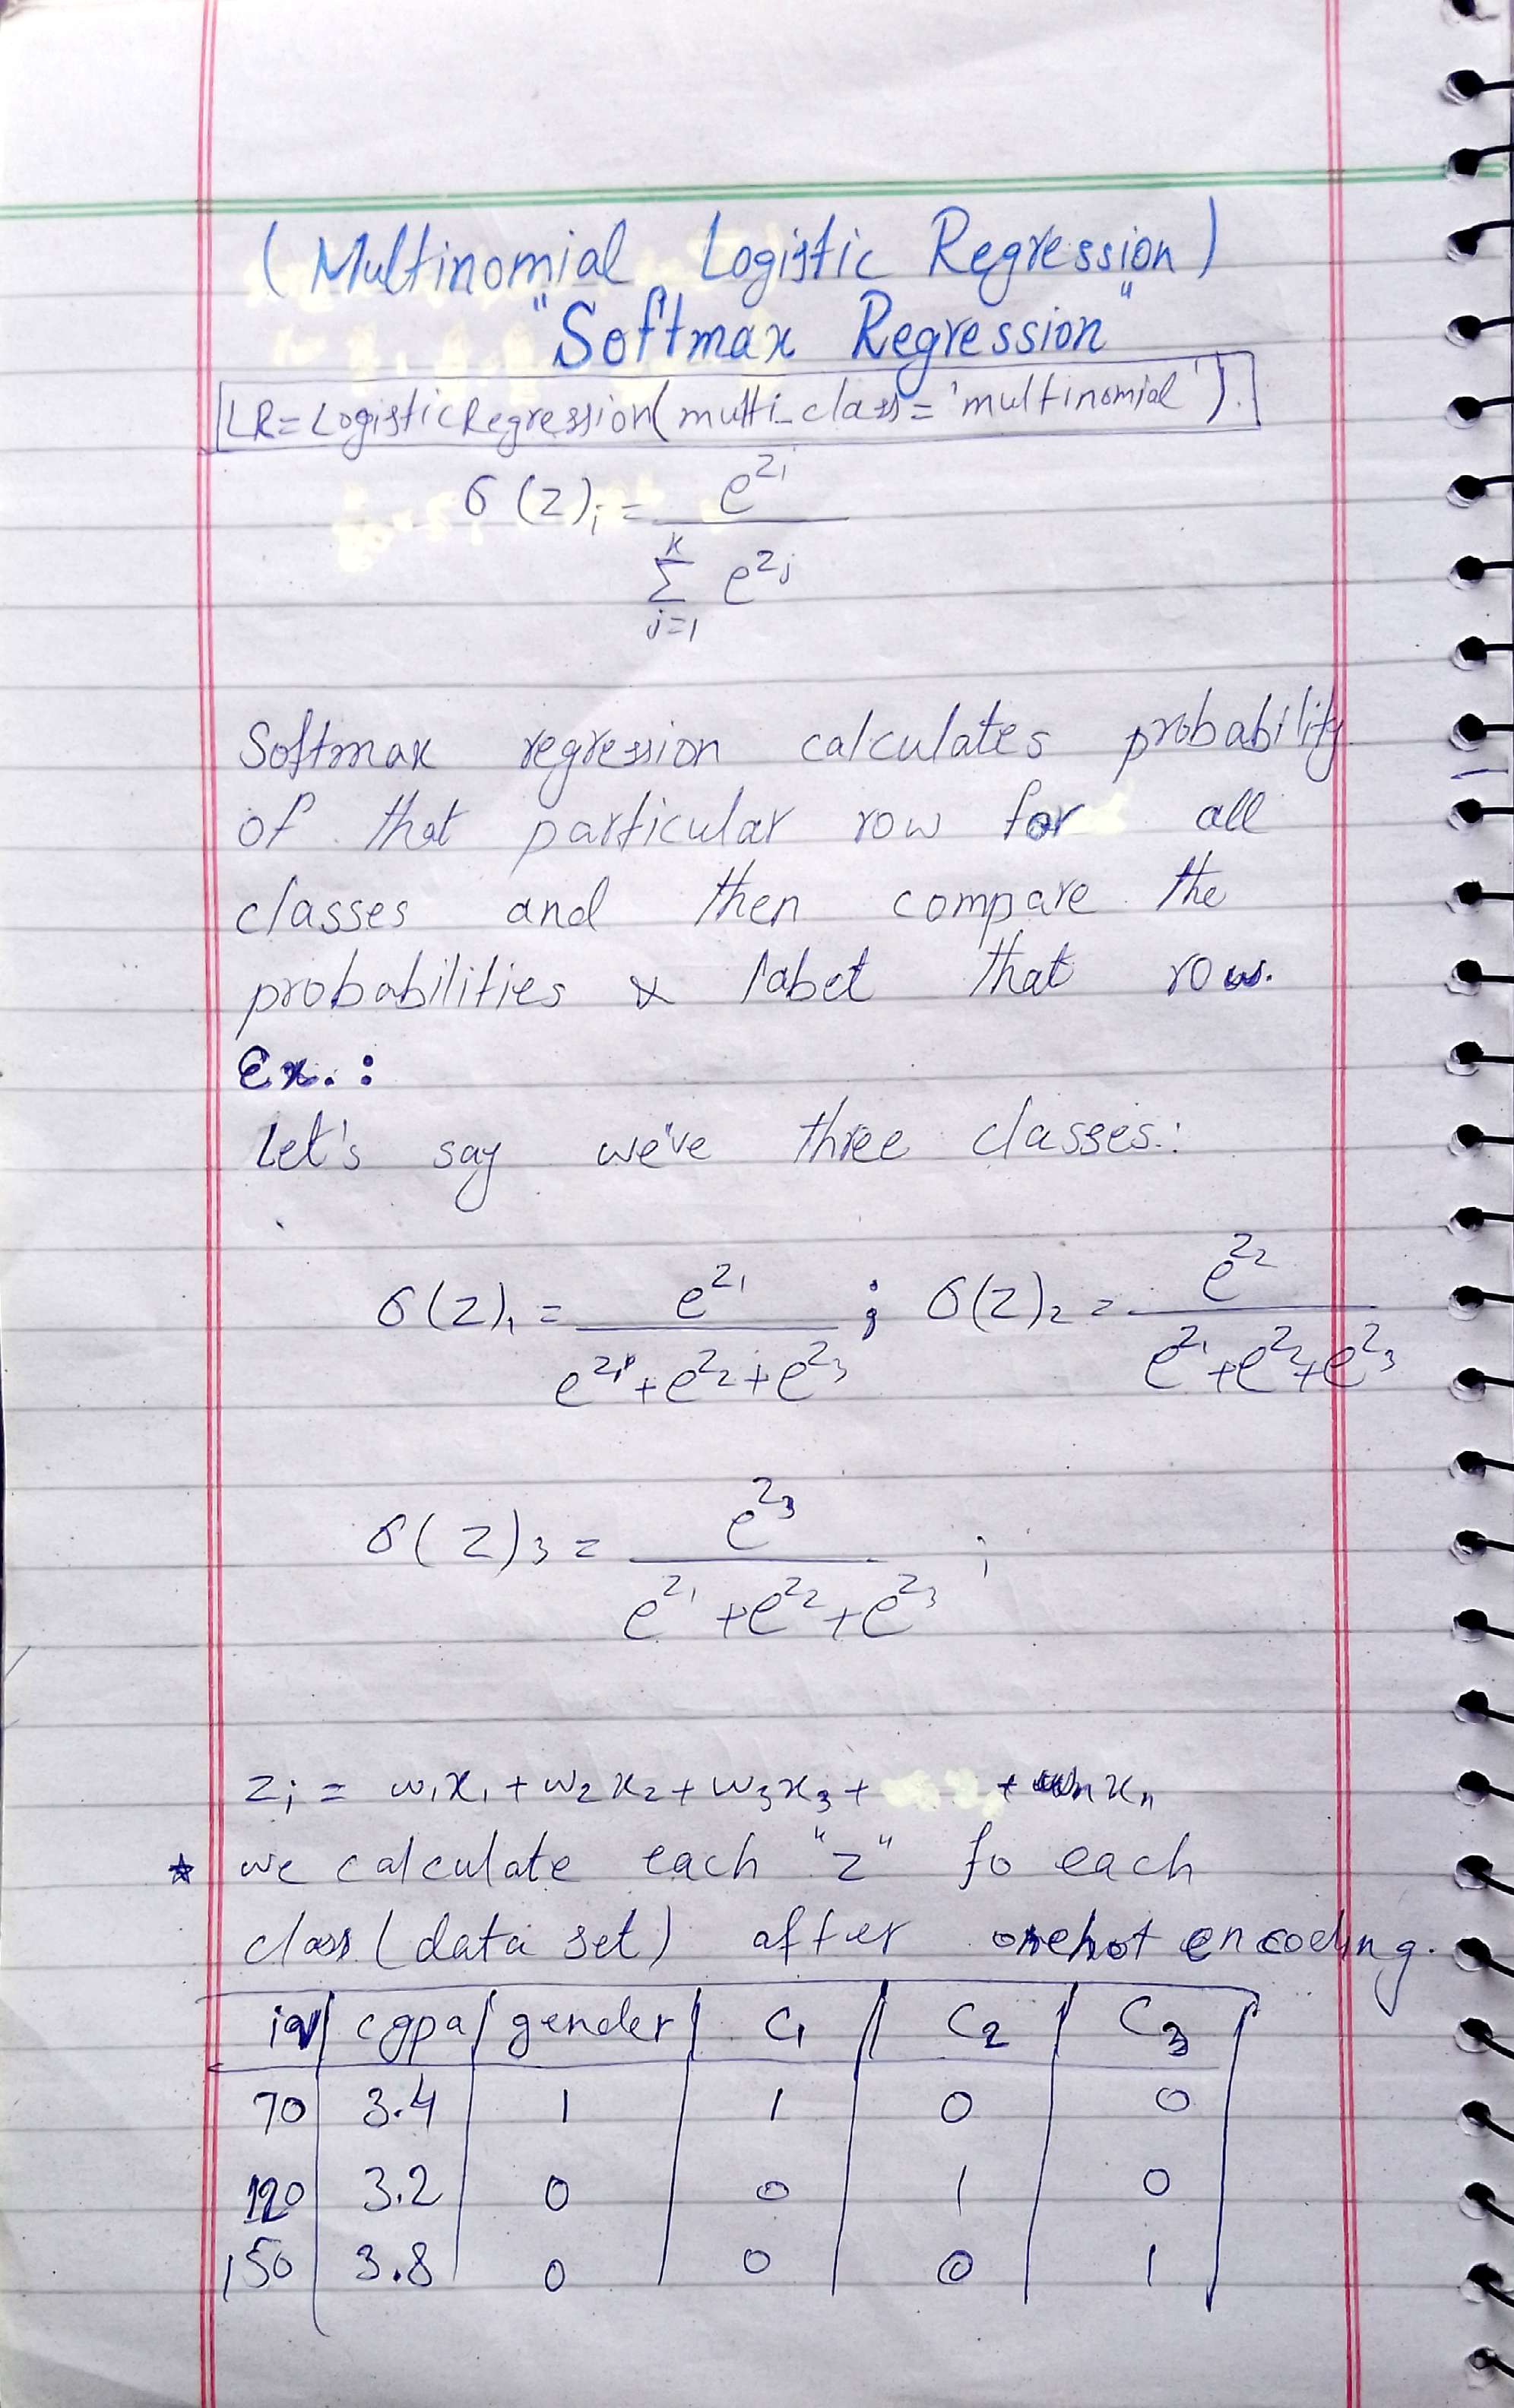 (Multinomial Logistic Regression)
"Softmax Regression"
LR=LogisticRegression(multi_class='multinomial').
σ(z)i = e^zi / Σ(j=1 to K) e^zj
Softmax regression calculates probability
of that particular row for all
classes and then compare the
probabilities & label that row.
Ex.:
Let's say we've three classes.:
σ(z)1 = e^z1 / (e^z1+e^z2+e^z3) ; σ(z)2 = e^z2 / (e^z1+e^z2+e^z3)
σ(z)3 = e^z3 / (e^z1+e^z2+e^z3) ;
zi = w1x1+w2x2+w3x3+ +wnxn
★ we calculate each "z" fo each
class (data set) after onehot encoding.
iq | cgpa | gender | C1 | C2 | C3
70 | 3.4 | 1 | 1 | 0 | 0
120 | 3.2 | 0 | 0 | 1 | 0
150 | 3.8 | 0 | 0 | 0 | 1